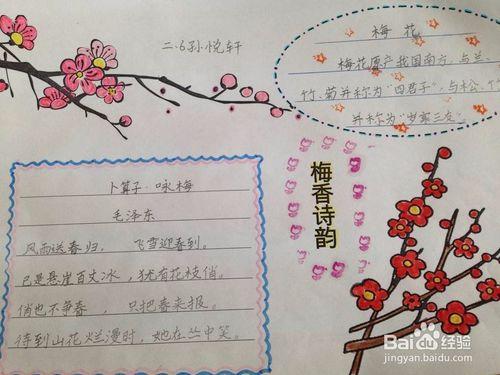 二.6孙悦轩
梅花
梅花原产我国南方,与兰、
竹、菊并称为"四君子",与松、竹
并称为"岁寒三友"。
梅香诗韵
卜算子·咏梅
毛泽东
风雨送春归, 飞雪迎春到。
已是悬崖百丈冰,犹有花枝俏。
俏也不争春, 只把春来报。
待到山花烂漫时,她在丛中笑。
Baidu经验
jingyan.baidu.com